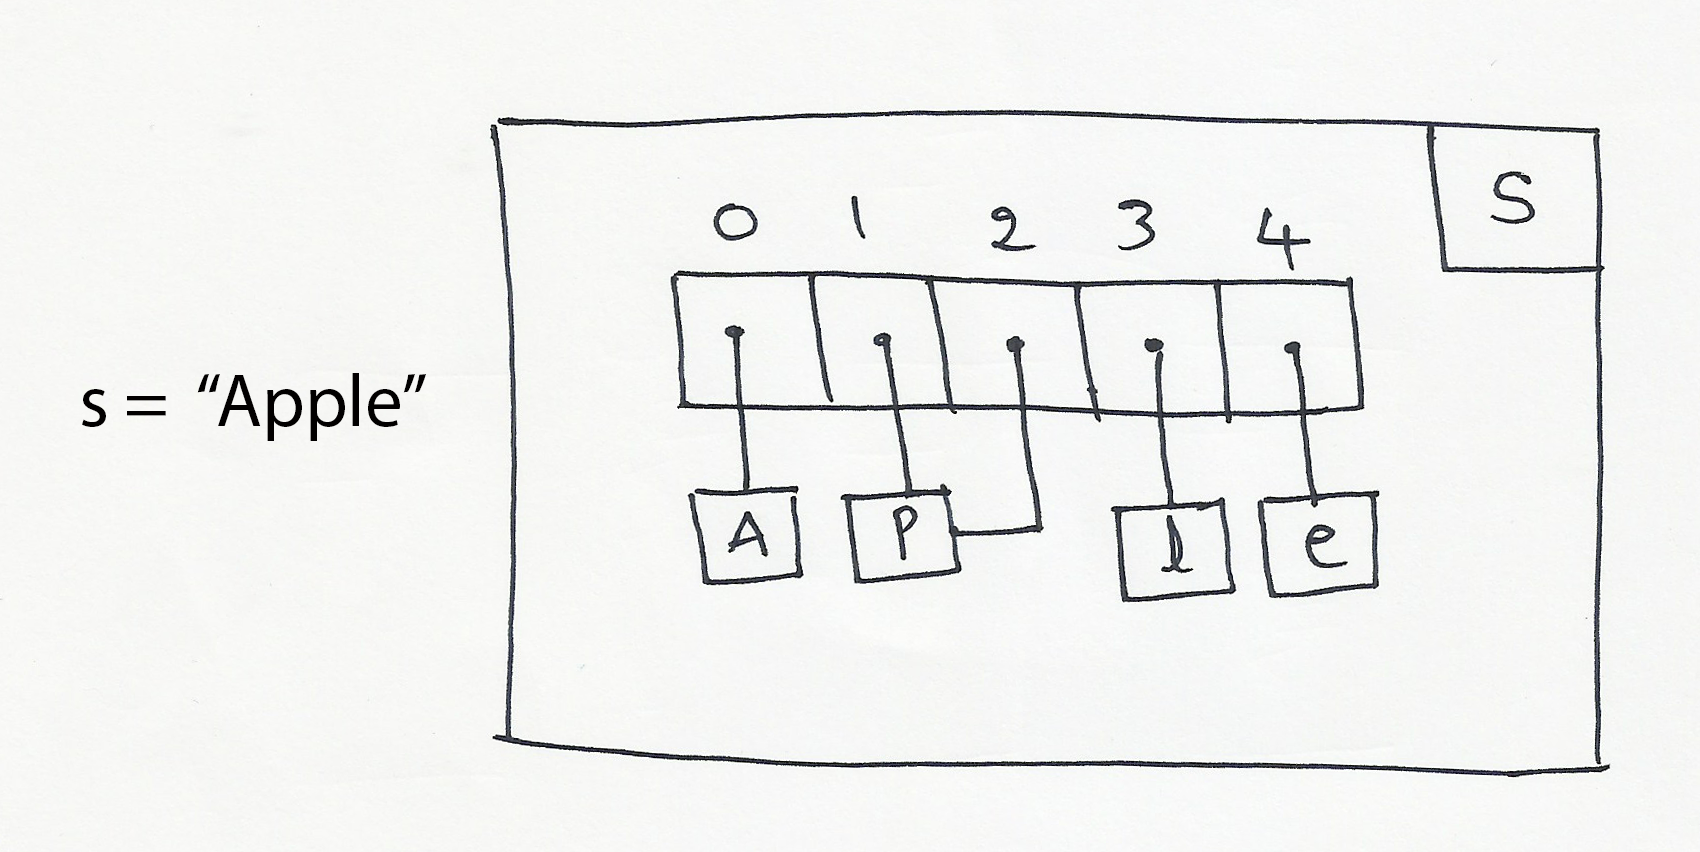 s = “Apple”
S
0 1 2 3 4
A P l e